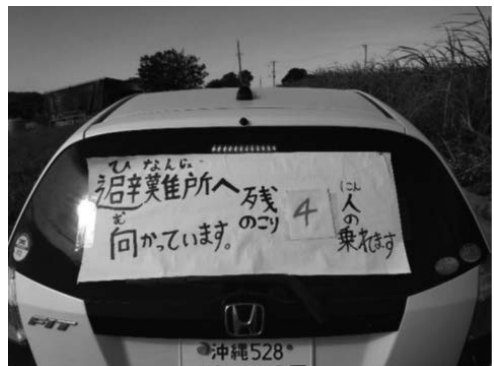 ひなんじょ
避難所へ
む
向かっています。
残
のこり
4
にん
人の
乗れます
FIT
沖縄528